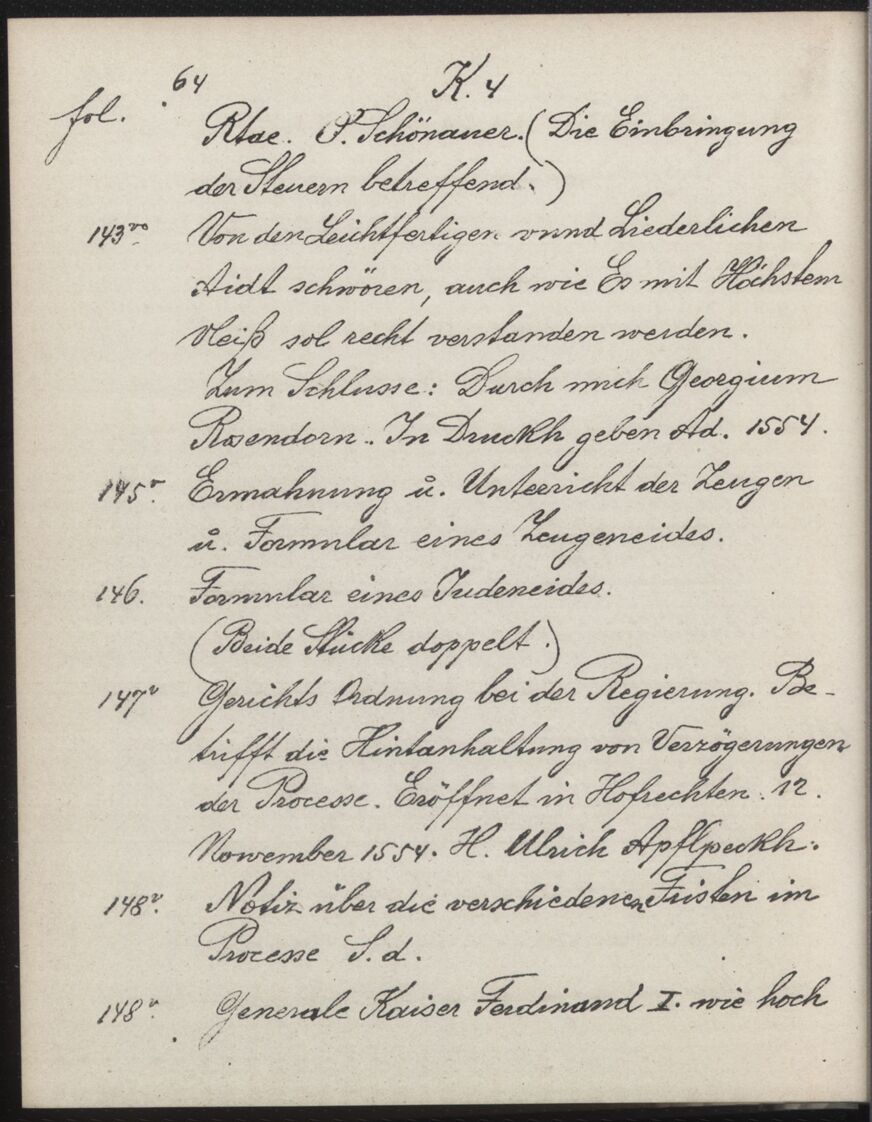 64 K. 4
fol. Rtae. P. Schönauer. (Die Einbringung
der Steuern betreffend.)
143vo Von den Leichtfertigen vnnd Liederlichen
Aidt schwören, auch wie Es mit Höchstem
vleiß sol recht verstanden werden.
Zum Schlusse: Durch mich Georgium
Rosendorn.. In Druckh geben Ad. 1554.
145v. Ermahnung u. Unterricht der Zeugen
u. Formular eines Zeugeneides.
146. Formular eines Judeneides.
(Beide Stücke doppelt.)
147v Gerichts Ordnung bei der Regierung. Be-
trifft die Hintanhaltung von Verzögerungen
der Processe. Eröffnet in Hofrechten. 12.
November 1554. H. Ulrich Apflpeckh.
148v. Notiz über die verschiedenen Fristen im
Processe S. d.
148v. Generale Kaiser Ferdinand I. wie hoch